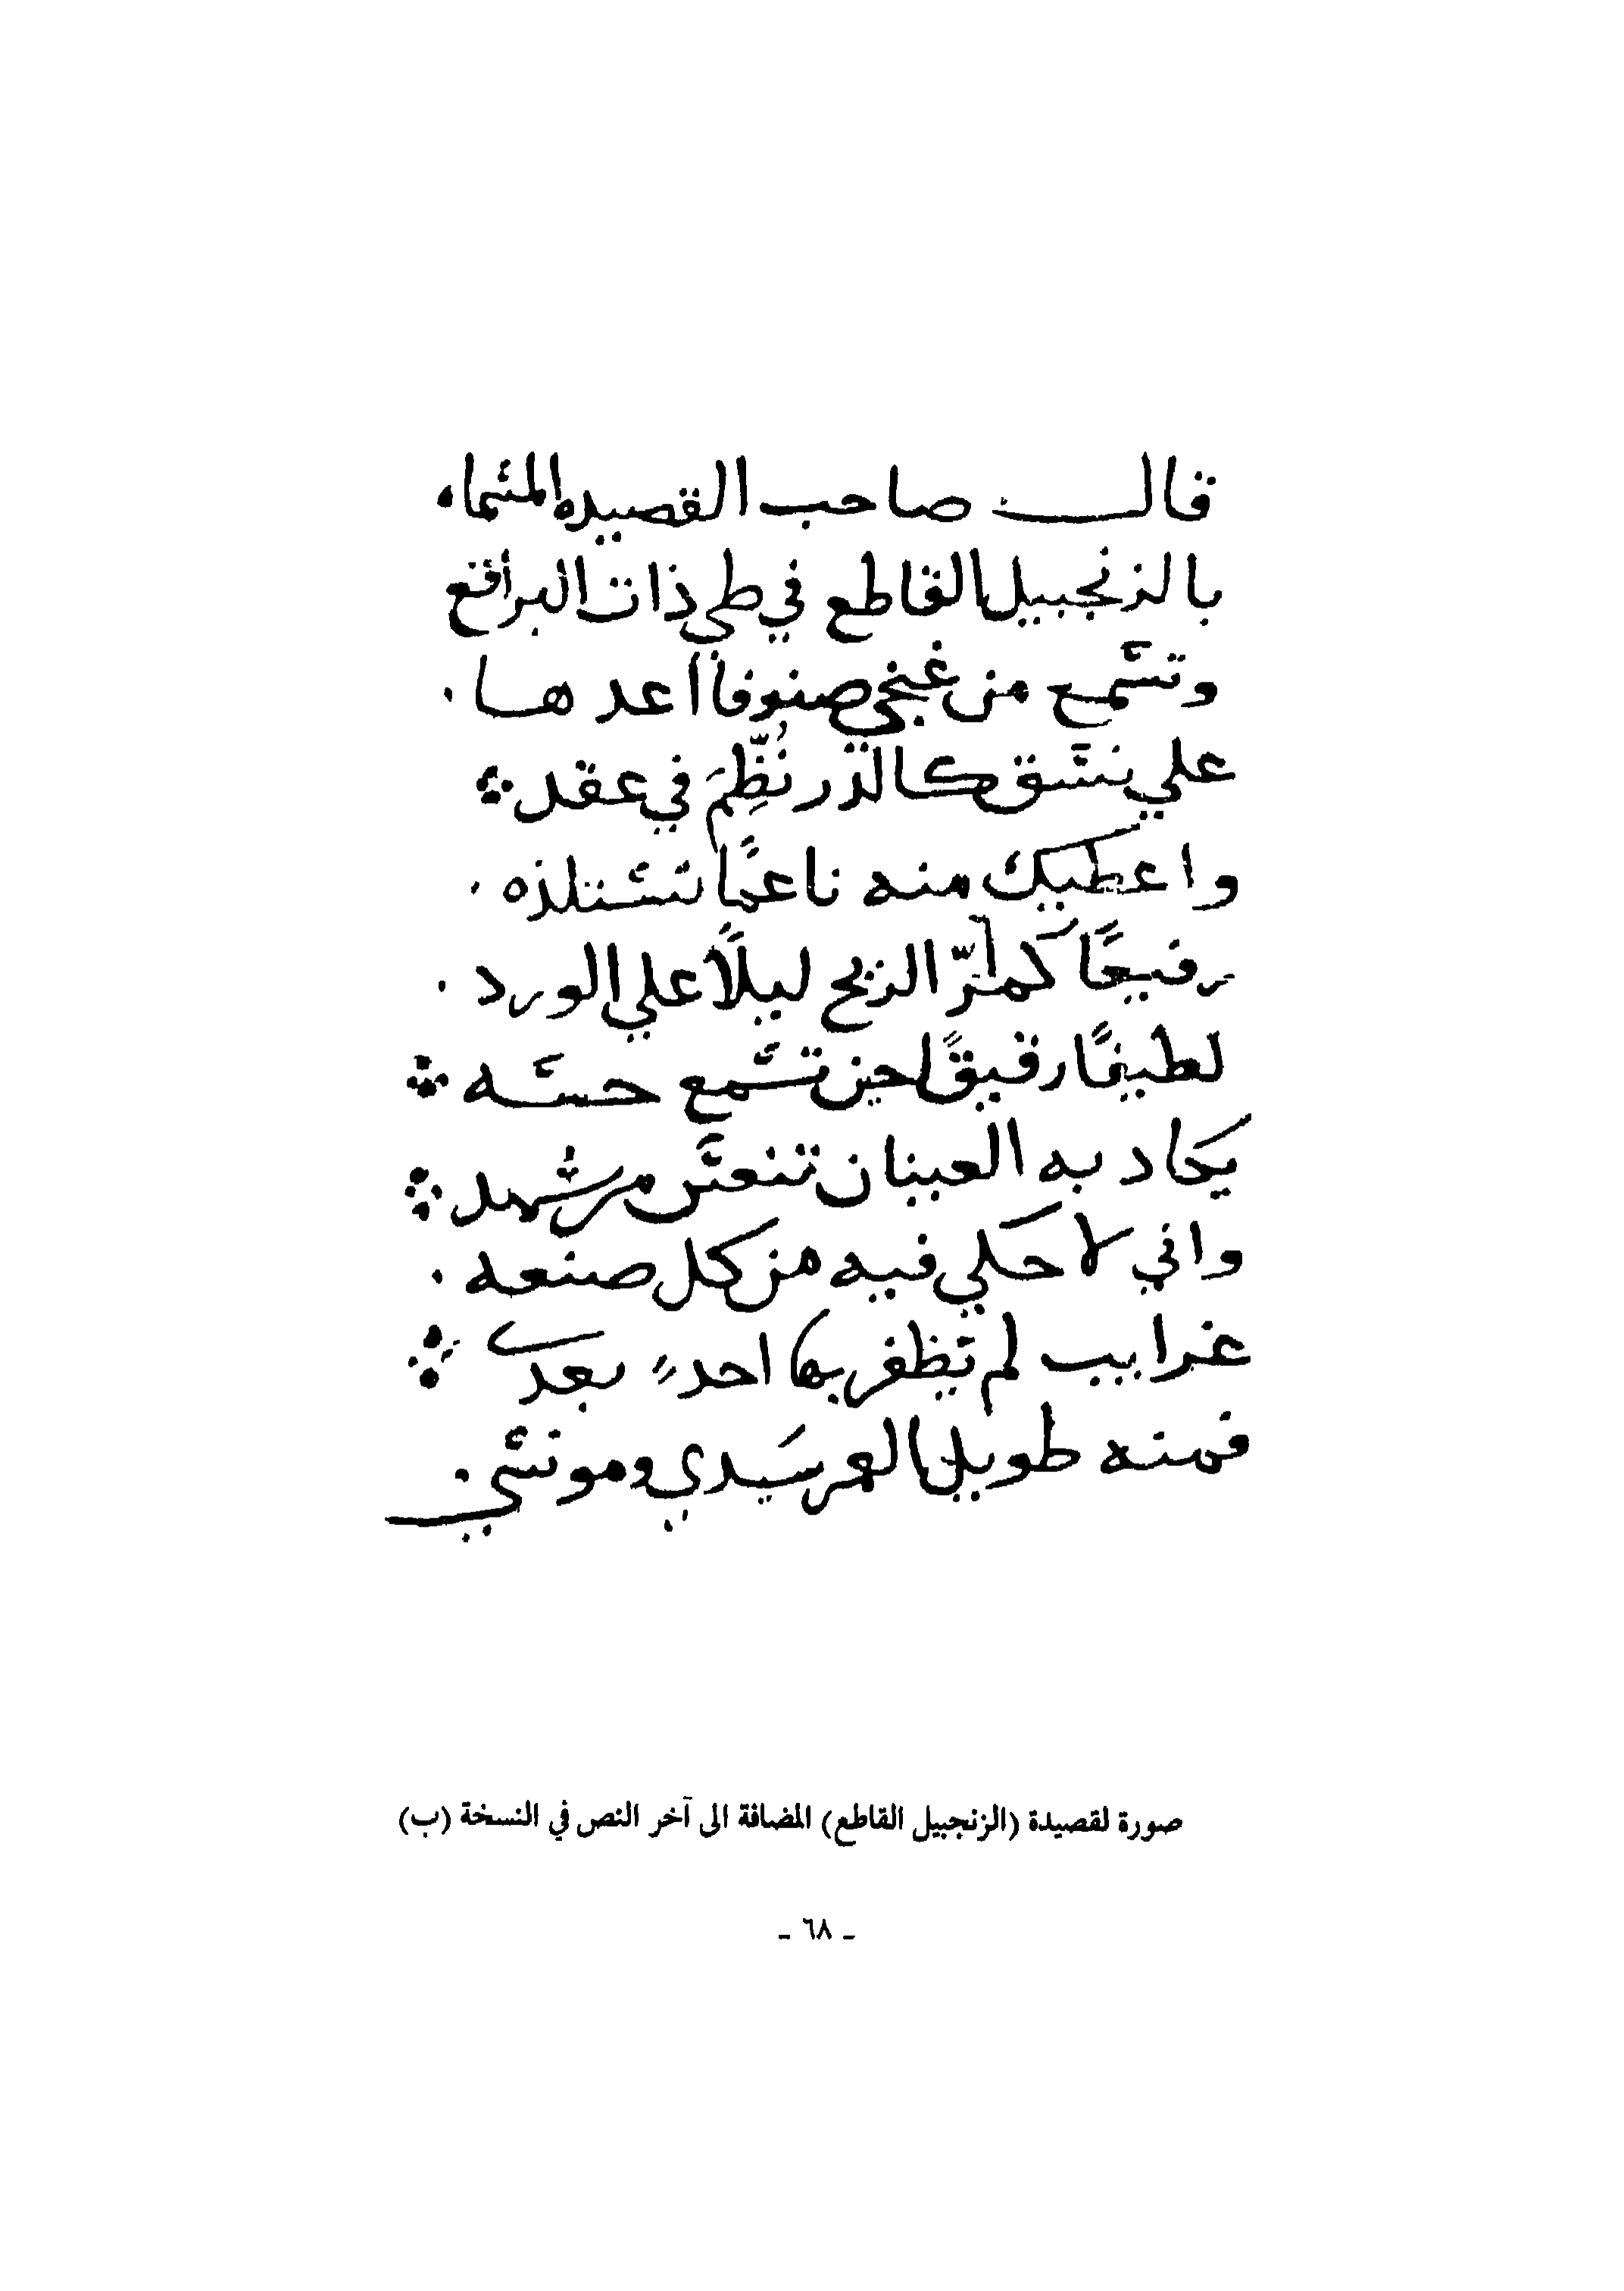 قال صاحب القصيده المسماه
بالزنجبيل القاطع في طي ذات البراقع
وتسمع من غنجي صنوفا اعدها.
علي نسق كالدر نُظِّمَ في عقد
واعطيك منه ناعمًا تستلذه.
رفيعًا كمرّ الريح ليلًا علي الورد.
لطيفًا رقيقًا حين تسمع حسه
يكاد به العينان تنعس من شهد
واني لاحكي فيه من كل صنعه.
غرايب لم يظفر بها احدٍ بعدي
فمنه طويل العمر سَيدي ومونسي.
صورة لقصيدة (الزنجبيل القاطع) المضافة الى آخر النص في النسخة (ب)
ـ ٦٨ ـ